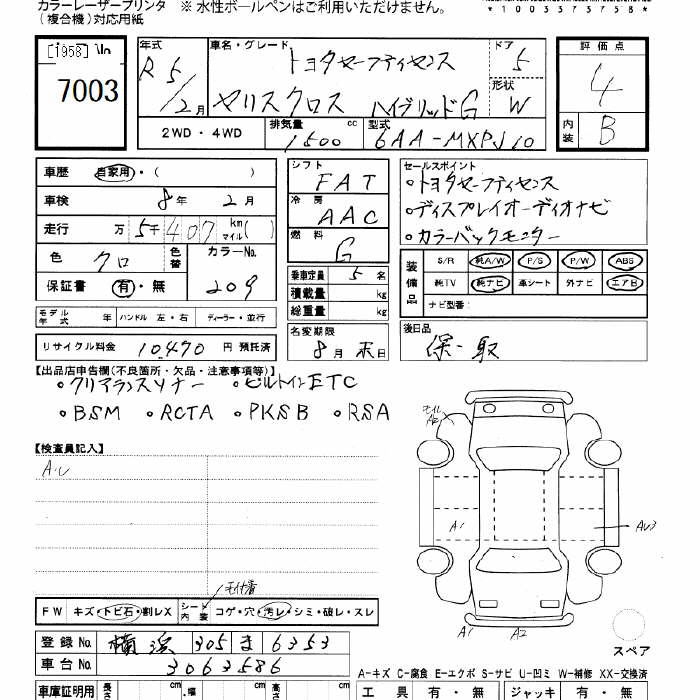 カラーレーザープリンタ ※ 水性ボールペンはご利用いただけません。
(複合機)対応用紙
*1003373758*
[1958]
7003
年式 R5/2月
車名・グレード トヨタセーフティセンス
ヤリスクロス ハイブリッドG
ドア 5
形状 W
2WD・4WD
排気量 1500 cc
型式 6AA-MXPJ10
評価点 4
内装 B
車歴 自家用・( )
車検 8年 2月
走行 万 5千 407 km マイル( )
色 クロ 色替 カラーNo. 209
保証書 有・無
シフト FAT
冷房 AAC
燃料 G
乗車定員 5名
積載量 kg
総重量 kg
セールスポイント
・トヨタセーフティセンス
・ディスプレイオーディオナビ
・カラーバックモニター
装備品 S/R 純A/W P/S P/W ABS
純TV 純ナビ 車シート 外ナビ エアB
ナビ型番:
モデル年式 年 ハンドル 左・右 ディーラー・並行
リサイクル料金 10,470 円 預託済
名変期限 8月末日
後日品 保・取
【出品店申告欄(不良箇所・欠品・注意事項等)】
・クリアランスソナー ・ビルトインETC
・BSM ・RCTA ・PKSB ・RSA
【検査員記入】
A・U
A1
AU3
A1 A2
スペア
FW キズ・トビ石・割レX シート内装 コゲ・穴・汚レ・シミ・破レ・スレ
登録No. 横浜 305 ま 6353
車台No. 3063586
A-キズ C-腐食 E-エクボ S-サビ U-凹ミ W-補修 XX-交換済
車庫証明用 長さ cm 幅 cm 高さ cm
工具 有・無 ジャッキ 有・無